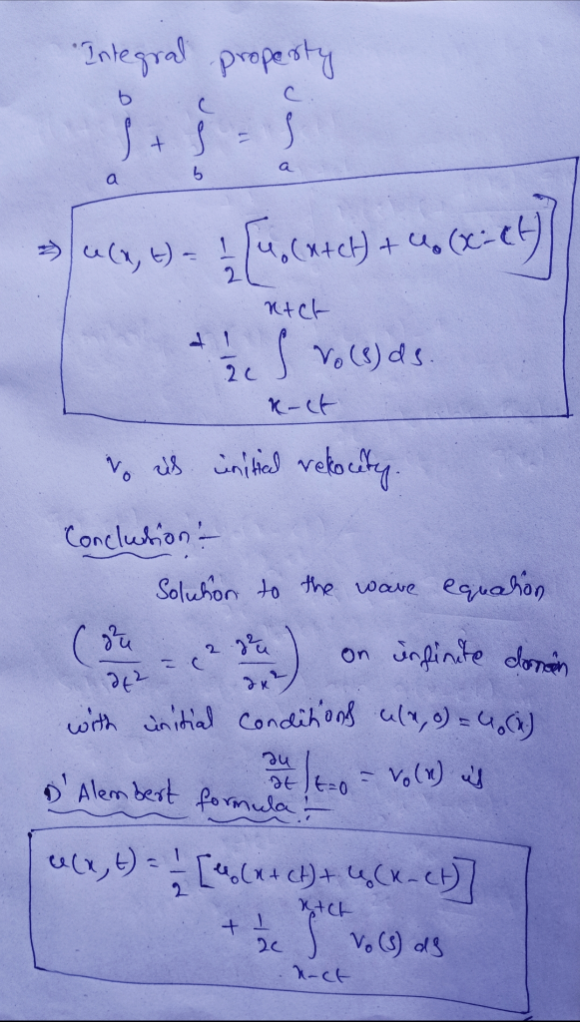 Integral property
∫_a^b + ∫_b^c = ∫_a^c
⇒ u(x, t) = 1/2 [u₀(x+ct) + u₀(x-ct)]
+ 1/2c ∫_{x-ct}^{x+ct} v₀(s) ds.
v₀ is initial velocity.
Conclusion:-
Solution to the wave equation
(∂²u/∂t² = c² ∂²u/∂x²) on infinite domain
with initial conditions u(x, 0) = u₀(x)
∂u/∂t |t=0 = v₀(x) is
D'Alembert formula:-
u(x, t) = 1/2 [u₀(x+ct) + u₀(x-ct)]
+ 1/2c ∫_{x-ct}^{x+ct} v₀(s) ds